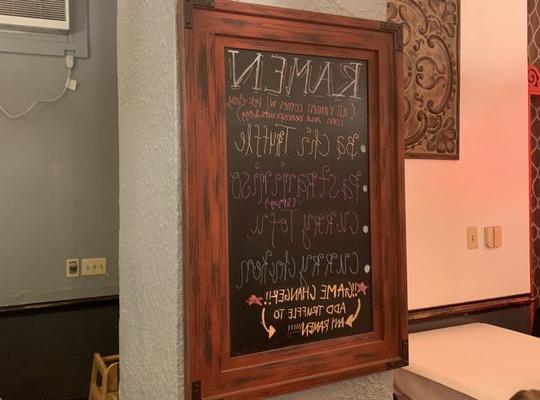 RAMEN
(all ramen comes w/ bok-choy,
corn and beansprouts & egg)
Bachi Truffle
Pastrami miso
(spicy)
Curry Tofu
Curry Chicken
!!GAME CHANGER!!
ADD TRUFFLE TO
ANY RAMEN!!!!!